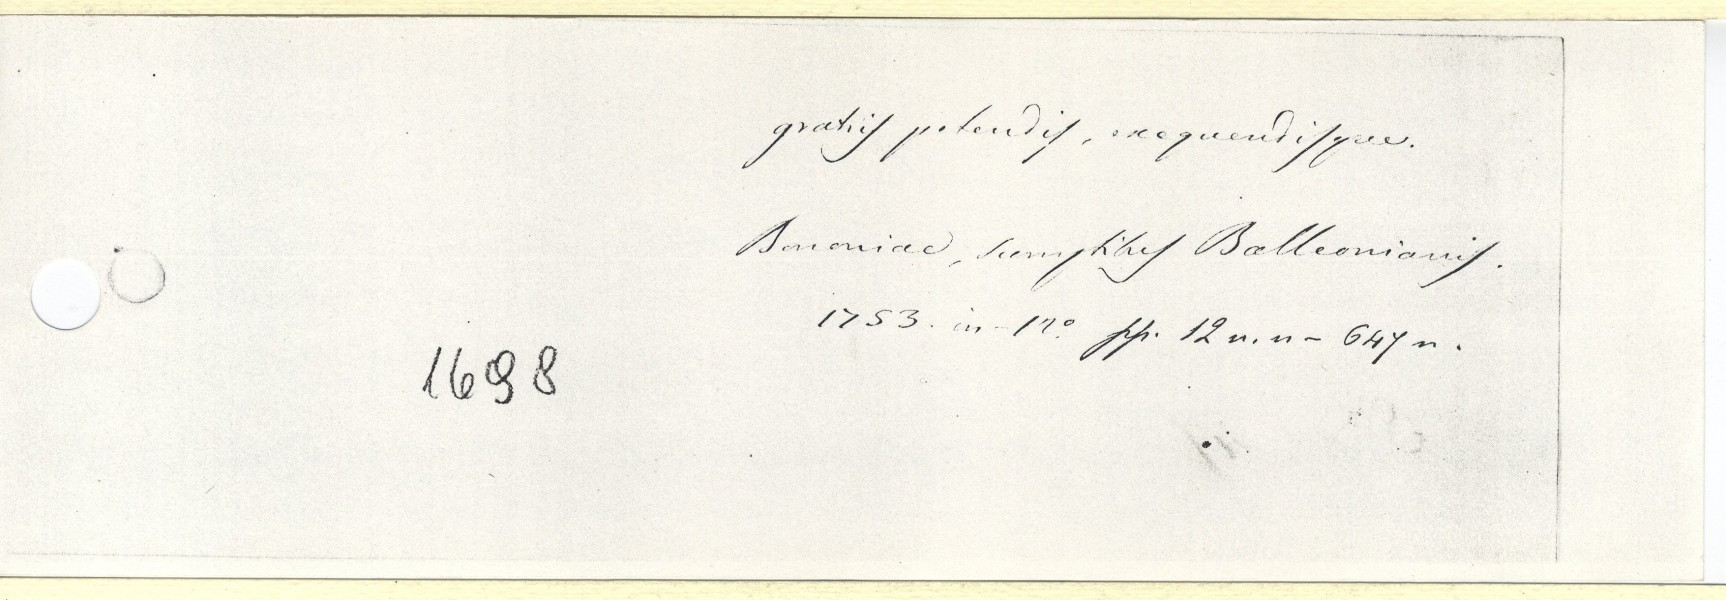 gratiis petendis, exequendisque.
Bononiae, sumptibus Balleonianis.
1753. in-12° pp. 12 n.n- 647 n.
1698